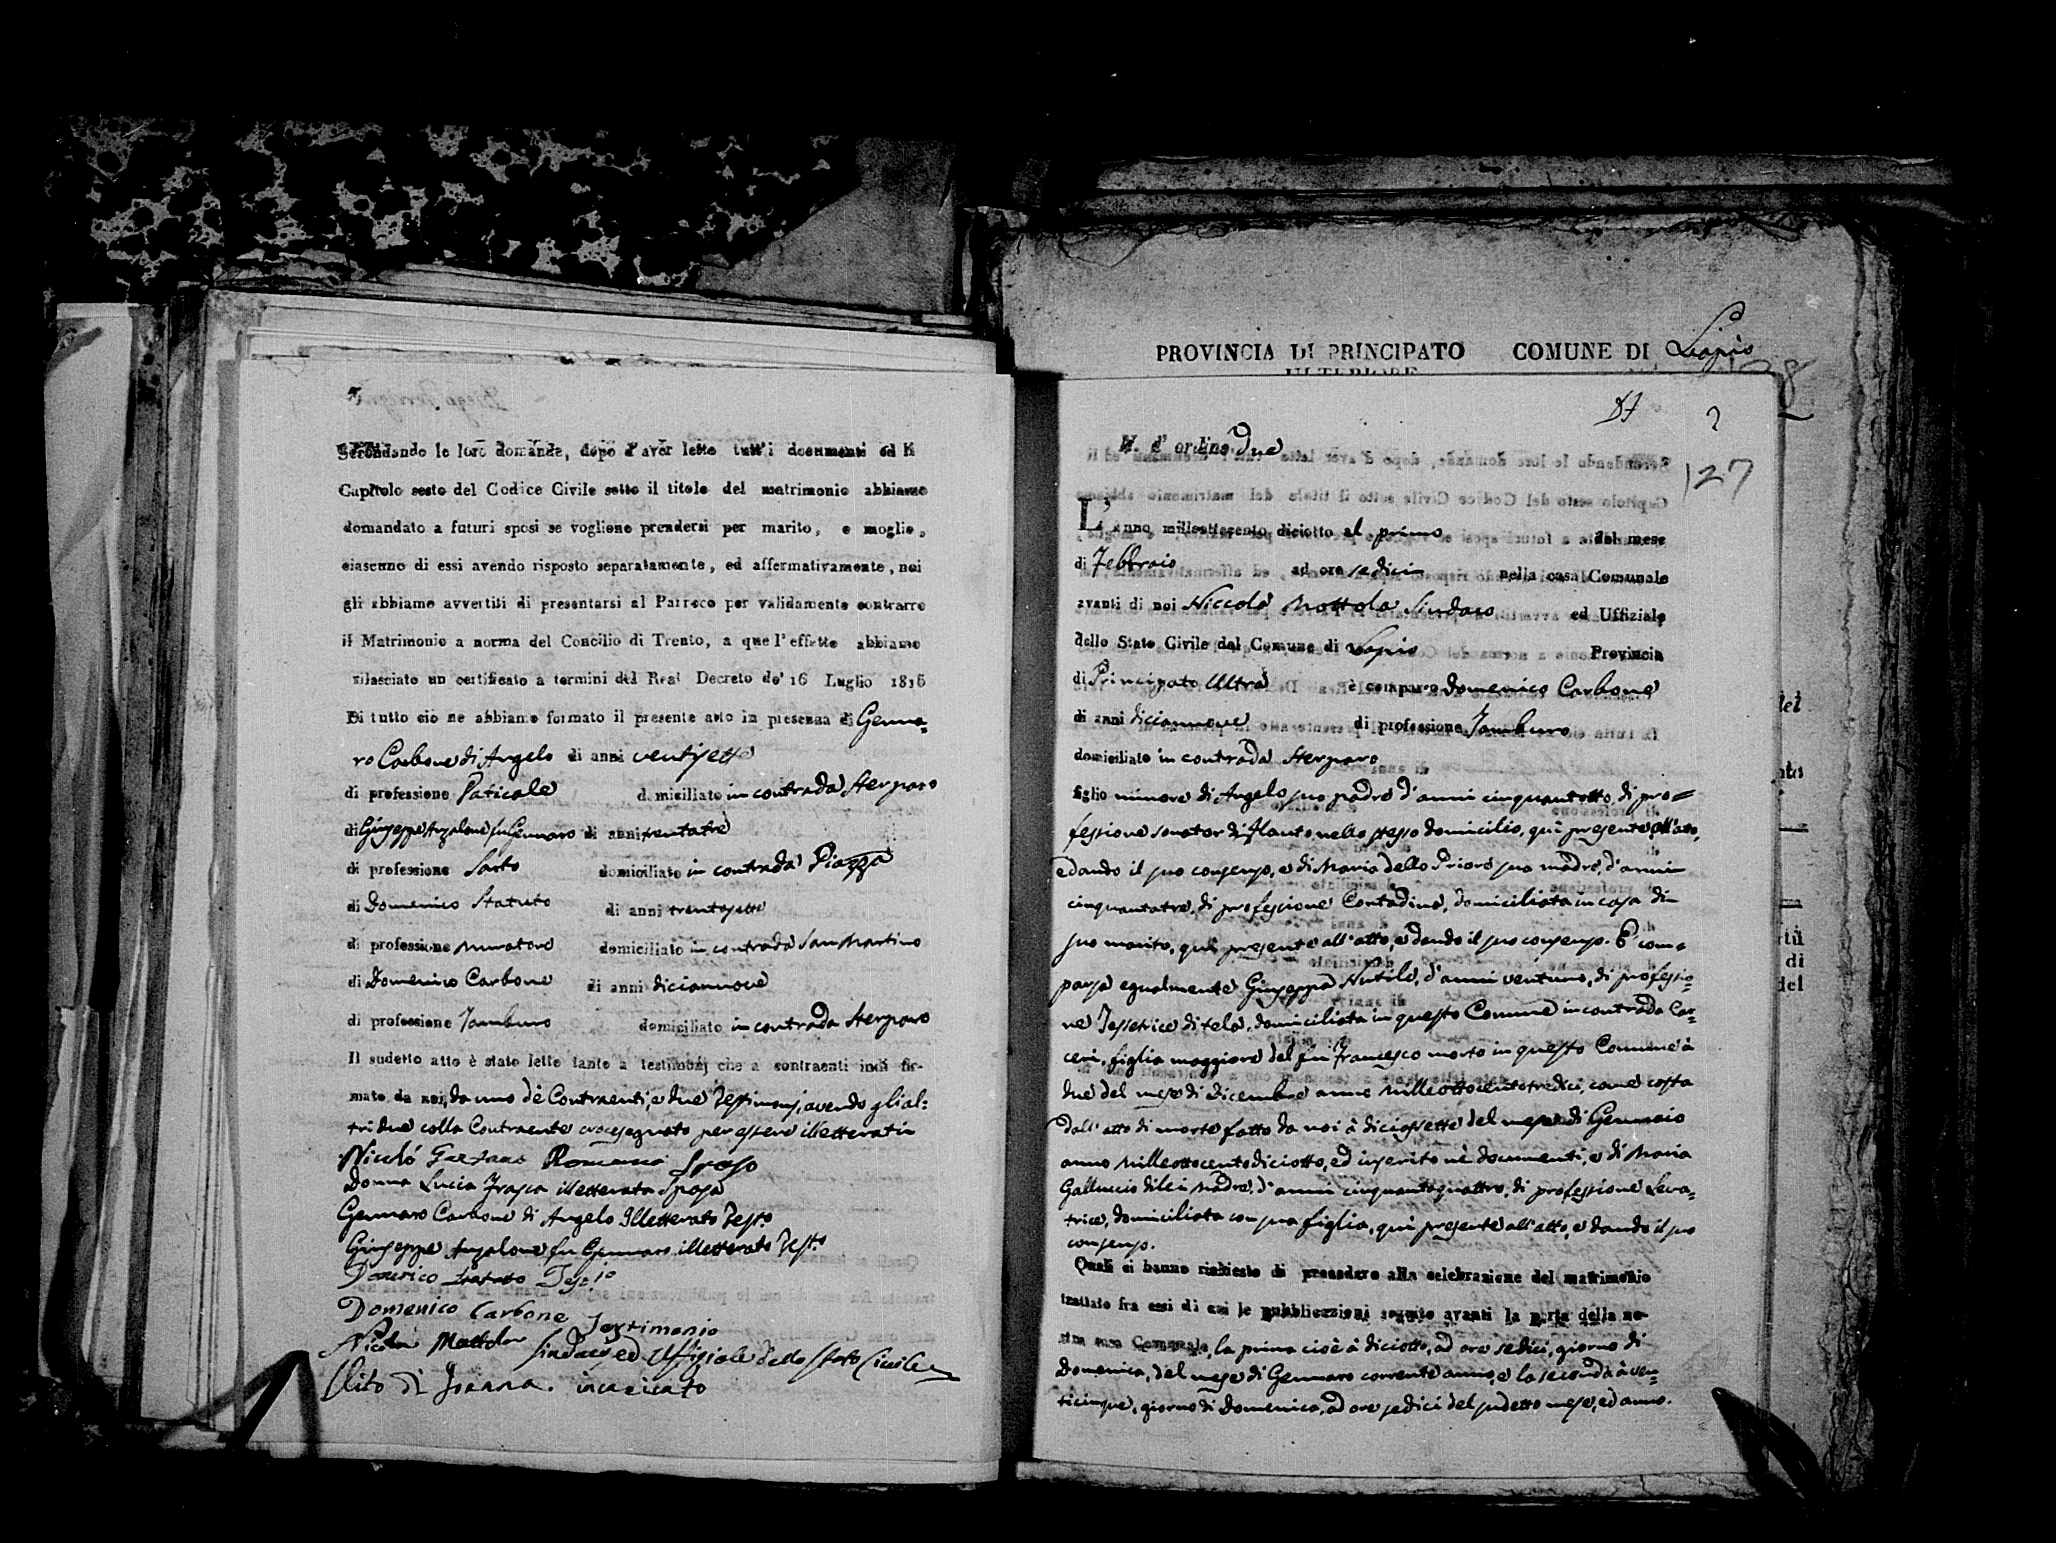 Secondando le loro domande, dopo d'aver letto tutt'i documenti ed il
Capitolo sesto del Codice Civile sotto il titolo del matrimonio abbiamo
domandato a futuri sposi se vogliono prendersi per marito, e moglie,
ciascuno di essi avendo risposto separatamente, ed affermativamente, noi
gli abbiamo avvertiti di presentarsi al Parroco per validamente contrarre
il Matrimonio a norma del Concilio di Trento, a que l'effetto abbiamo
rilasciato un certificato a termini del Real Decreto de' 16 Luglio 1816
Di tutto ciò ne abbiamo formato il presente atto in presenza di Genna=
ro Carbone di Angelo di anni ventisette
di professione domiciliato in contrada Sterparo
di Giuseppe Anzalone fu Gennaro di anni trentatre
di professione Sarto domiciliato in contrada Piazza
di Domenico Statuto di anni trentasette
di professione muratore domiciliato in contrada San Martino
di Domenico Carbone di anni diciannove
di professione Tamburo domiciliato in contrada Sterparo
Il sudetto atto è stato letto tanto a testimonj che a contraenti indi fir-
mato da noi, da uno dè Contraenti, e due Testimonj, avendo gl'al=
tri due colla Contraente crocesegnato per essere illetterati
Nicolò Gaetano Romano Sposo
Donna Lucia Frasca illetterata Sposa
Gennaro Carbone di Angelo Illetterato Testo
Giuseppe Anzalone fu Gennaro illetterato Testo
Domenico Statuto
Domenico Carbone Testimonio
Nicola Mottola Sindaco, ed Uffiziale dello Stato Civile
Vito di Joanna incaricato
PROVINCIA DI PRINCIPATO COMUNE DI Lapio
ULTERIORE
2
127
N. d' ordine Due
L'anno milleottocento diciotto al primo del mese
di Febbraio ad ore sedici nella casa Comunale
avanti di noi Niccolò Mottola Sindaco ed Uffiziale
dello Stato Civile del Comune di Lapio Provincia
di Principato Ultra è comparso Domenico Carbone
di anni diciannove di professione Tamburo
domiciliato in contrada Sterparo
figlio minore di Angelo suo padre d'anni cinquantotto, di pro=
fessione sonator di flauto nello stesso domicilio, quì presente all'atto,
e dando il suo consenso, e di Maria dello Priore sua madre, d'anni
cinquantatre, di professione Contadina, domiciliata in casa di
suo marito, quì presente all'atto, e dando il suo consenso. E' com=
parsa egualmente Giuseppa Nutile, d'anni ventuno, di professio=
ne Tessitrice di tela, domiciliata in questo Comune in contrada Car=
ceri, figlia maggiore del fu Francesco morto in questo Comune à
due del mese di Dicembre anno milleottocentotredici, come costa
dall'atto di morte fatto da noi à diciassette del mese di Gennaio
anno milleottocentodiciotto, ed inserito nè documenti, e di Maria
Galluccio di lei Madre, d'anni cinquantaquattro, di professione Leva=
trice, domiciliata con sua figlia, quì presente all'atto, e dando il suo
consenso.
Quali ci hanno richiesto di procedere alla celebrazione del matrimonio
trattato fra essi di cui le pubblicazioni seguite avanti la porta della no-
stra casa Comunale, la prima cioè à diciotto, ad ore sedici, giorno di
Domenica, del mese di Gennaro corrente anno, e la seconda à ven=
ticinque, giorno di Domenica, ad ore sedici del sudetto mese, ed anno.